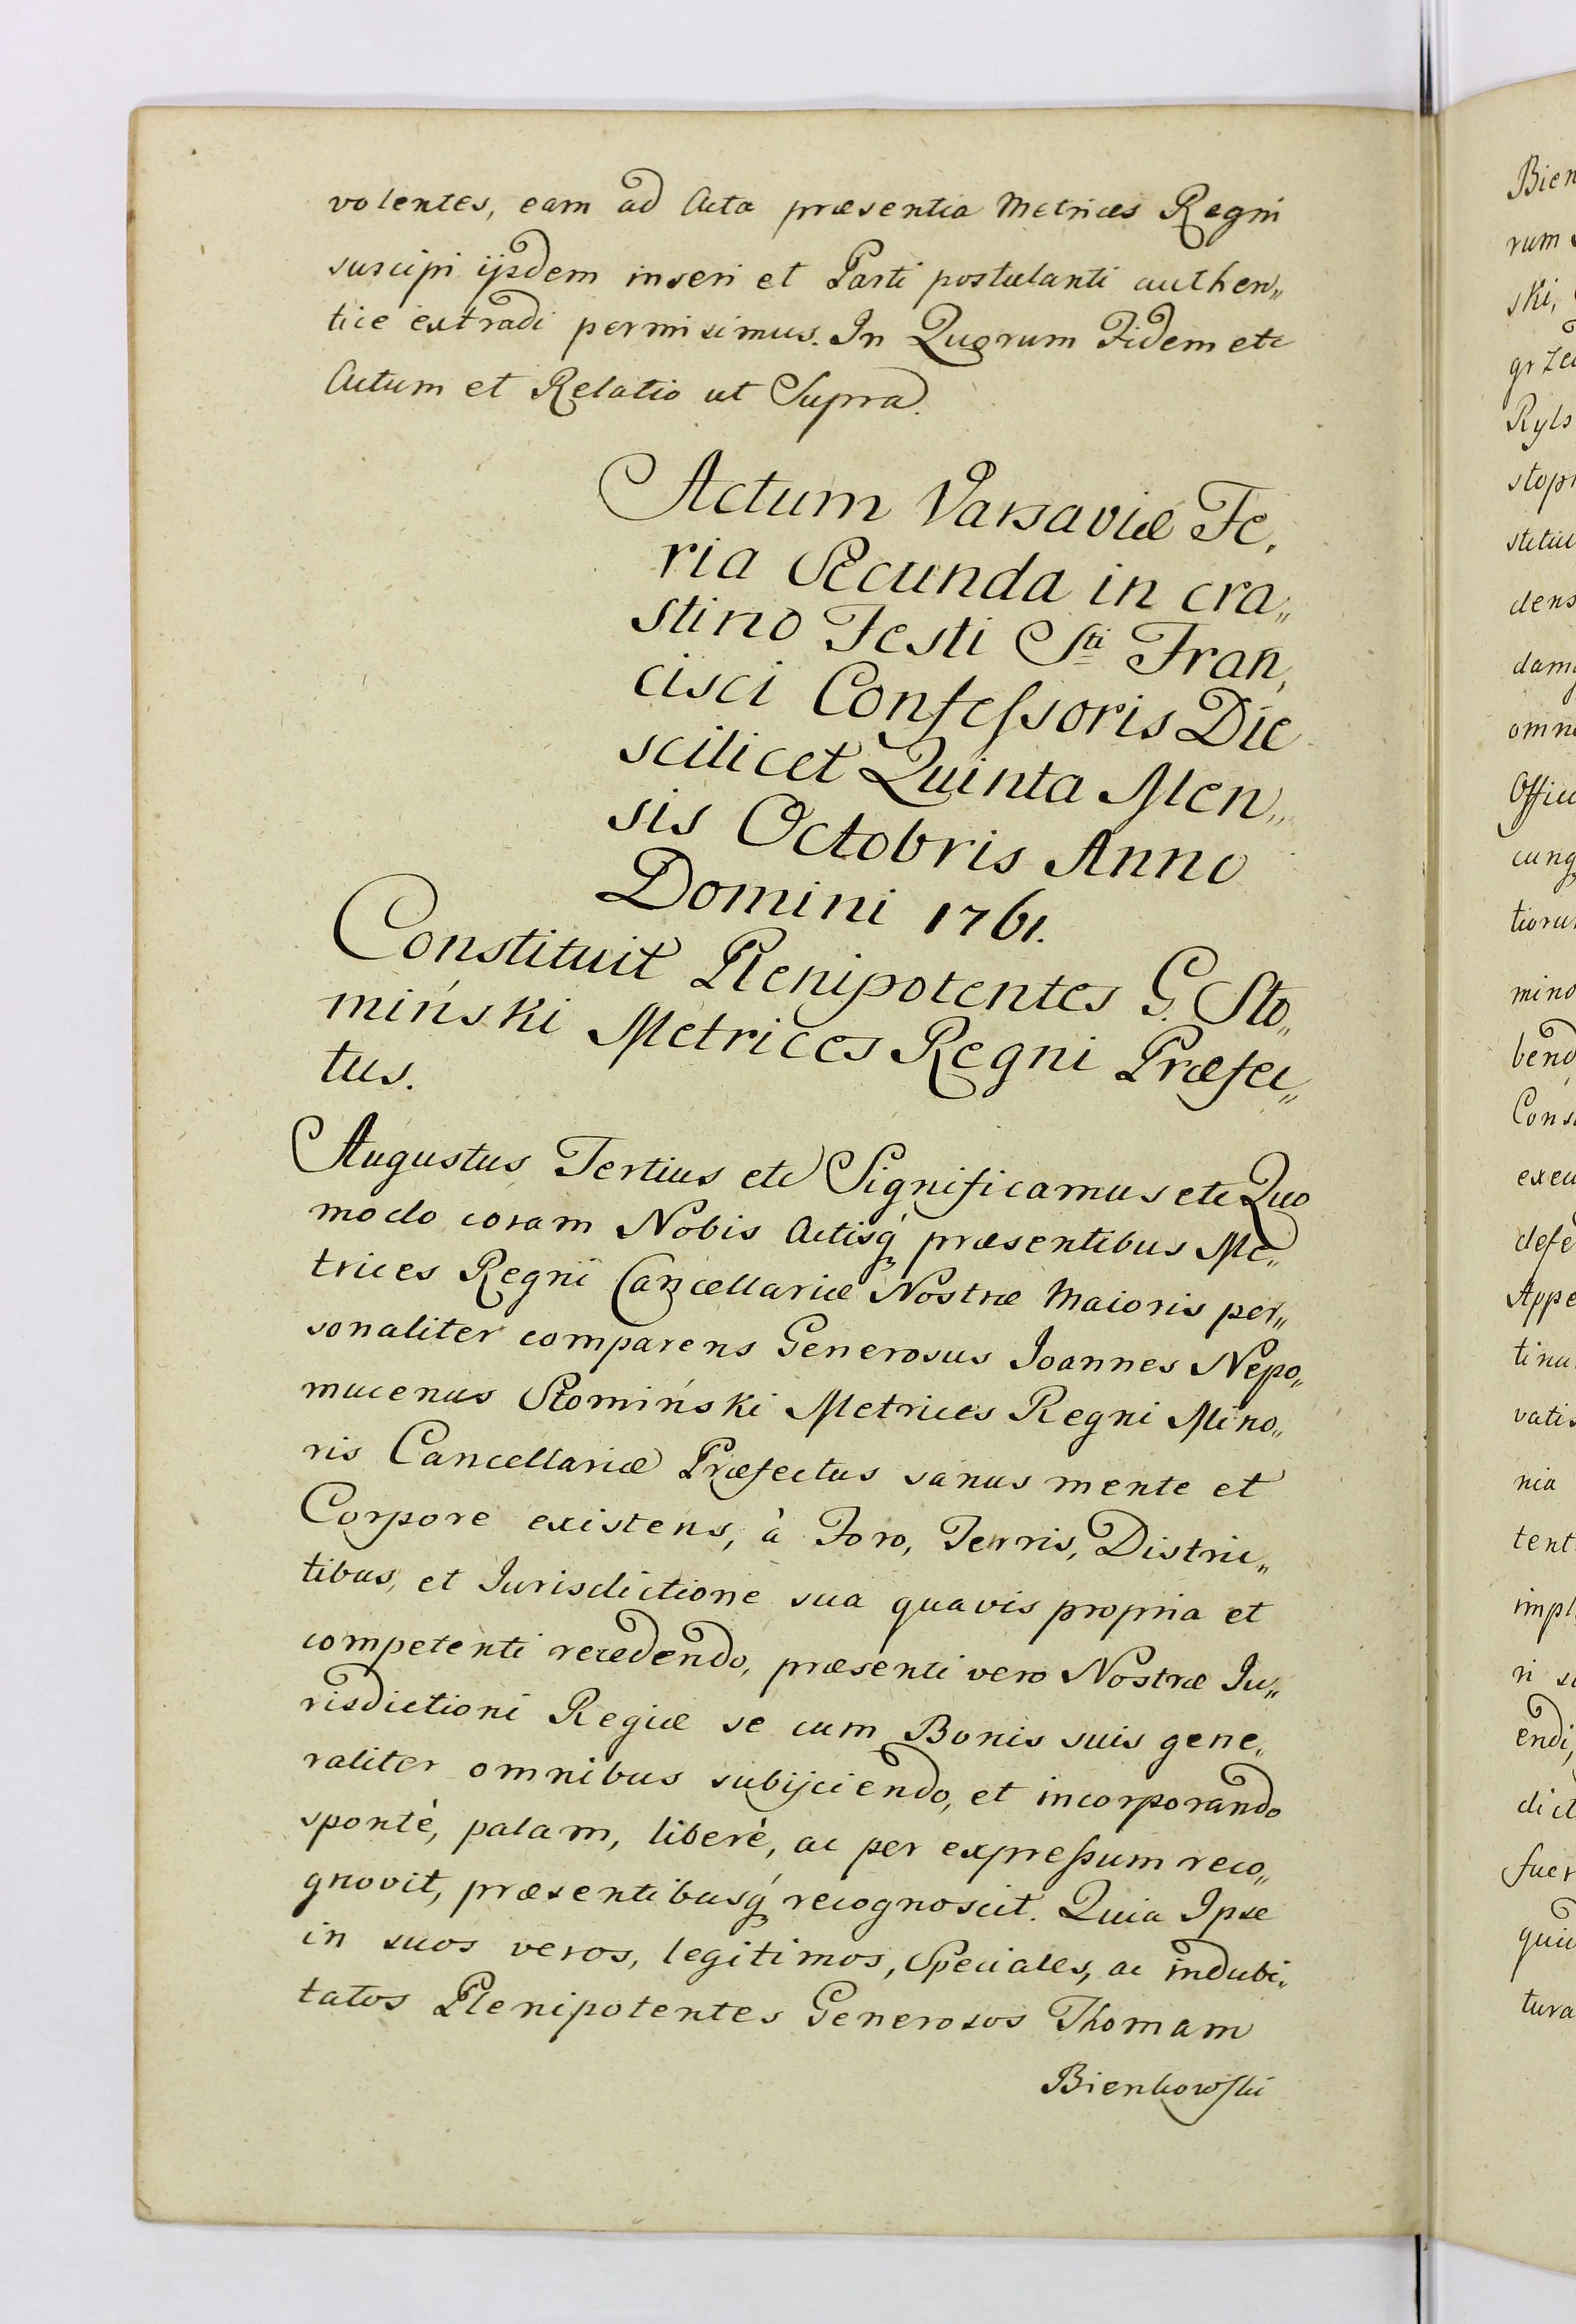 volentes, eam ad Acta præsentia Metrices Regni
suscipi ijsdem inseri et Parti postulanti authen„
tice extradi permisimus. In Quorum Fidem etc
Actum et Relatio ut Supra.
Actum Varsaviæ Fe„
ria Secunda in cra„
stino Festi Sti Fran„
cisci Confeſsoris Die
scilicet Quinta Men„
sis Octobris Anno
Domini 1761.
Constituit Plenipotentes G. Sło„
miński Metrices Regni Præfec„
tus.
Augustus Tertius etc Significamus etc Quo
modo coram Nobis Actisq́ præsentibus Me„
trices Regni Cancellariæ Nostræ Maioris per„
sonaliter comparens Generosus Ioannes Nepo„
mucenus Słomiński Metrices Regni Mino„
ris Cancellariæ Præfectus sanus mente et
Corpore existens, à Foro, Terris, Distric„
tibus, et Iurisdictione sua quavis propria et
competenti recedendo, præsenti vero Nostræ Iu„
risdictioni Regiæ se cum Bonis suis gene„
raliter omnibus subijciendo, et incorporando
spontè, palam, liberè, ac per expreſsum reco„
gnovit, præsentibusq́ recognoscit. Quia Ipse
in suos veros, legitimos, Speciales, ac indubi„
tatos Plenipotentes Generosos Thomam
Bienkowſki
Bien
rum
ski,
grze
Ryls
stopn
dens
dam
omn
Offici
cunq
tioru
mino
bend
Cons
exec
defe
Appe
tinu
vatis
nia
tent
impl
ri
endi,
dict
fuer
tura